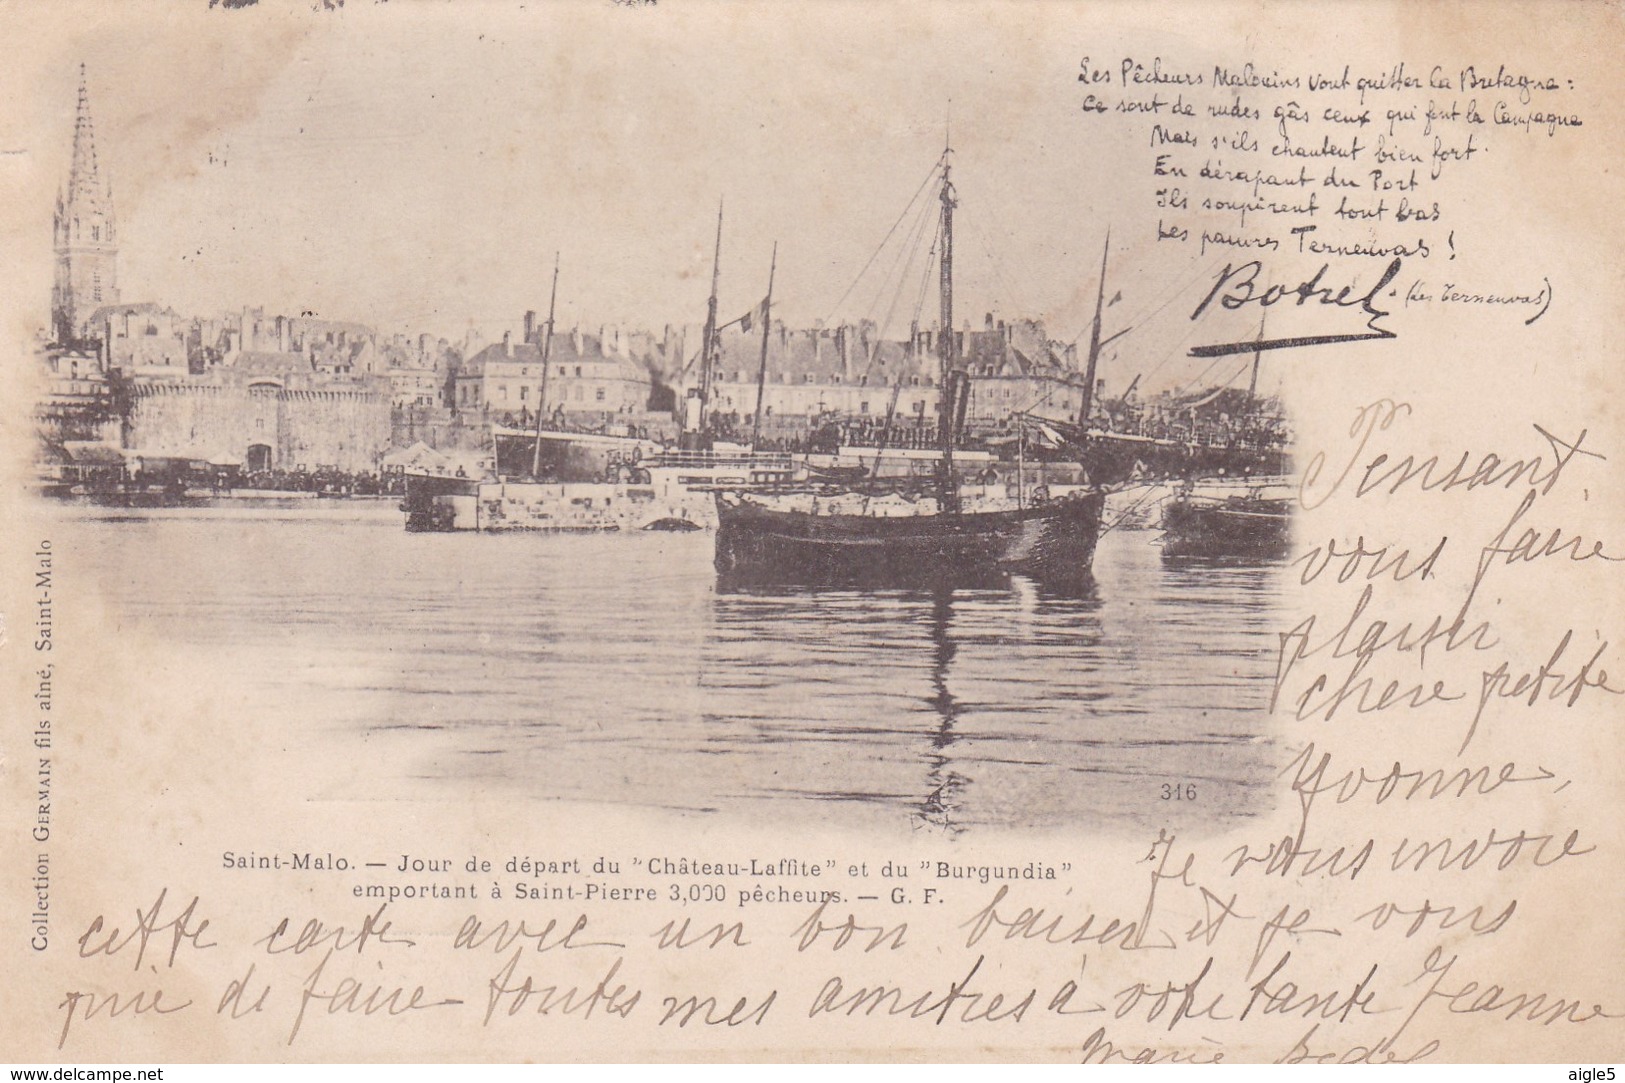 Les Pêcheurs Malouins vont quitter la Bretagne :
Ce sont de rudes gâs ceux qui font la Campagne
Mais s'ils chantent bien fort
En dérapant du Port
Ils soupirent tout bas
Les pauvres Terneuvas !
Botrel. (Les Terneuvas)
Pensant
vous faire
plaisir
chère petite
Yvonne,
Je vous envoie
cette carte avec un bon baiser et je vous
prie de faire toutes mes amitiés à votre tante Jeanne
Marie Bedel
316
Saint-Malo. — Jour de départ du "Château-Laffite" et du "Burgundia"
emportant à Saint-Pierre 3,000 pêcheurs. — G. F.
Collection GERMAIN fils aîné, Saint-Malo
www.delcampe.net
aigle5